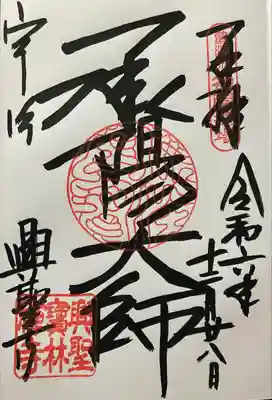 奉拝
令和六年
十二月廿八日
承陽大師
宇治
興聖寺
興聖
寶林
禪寺